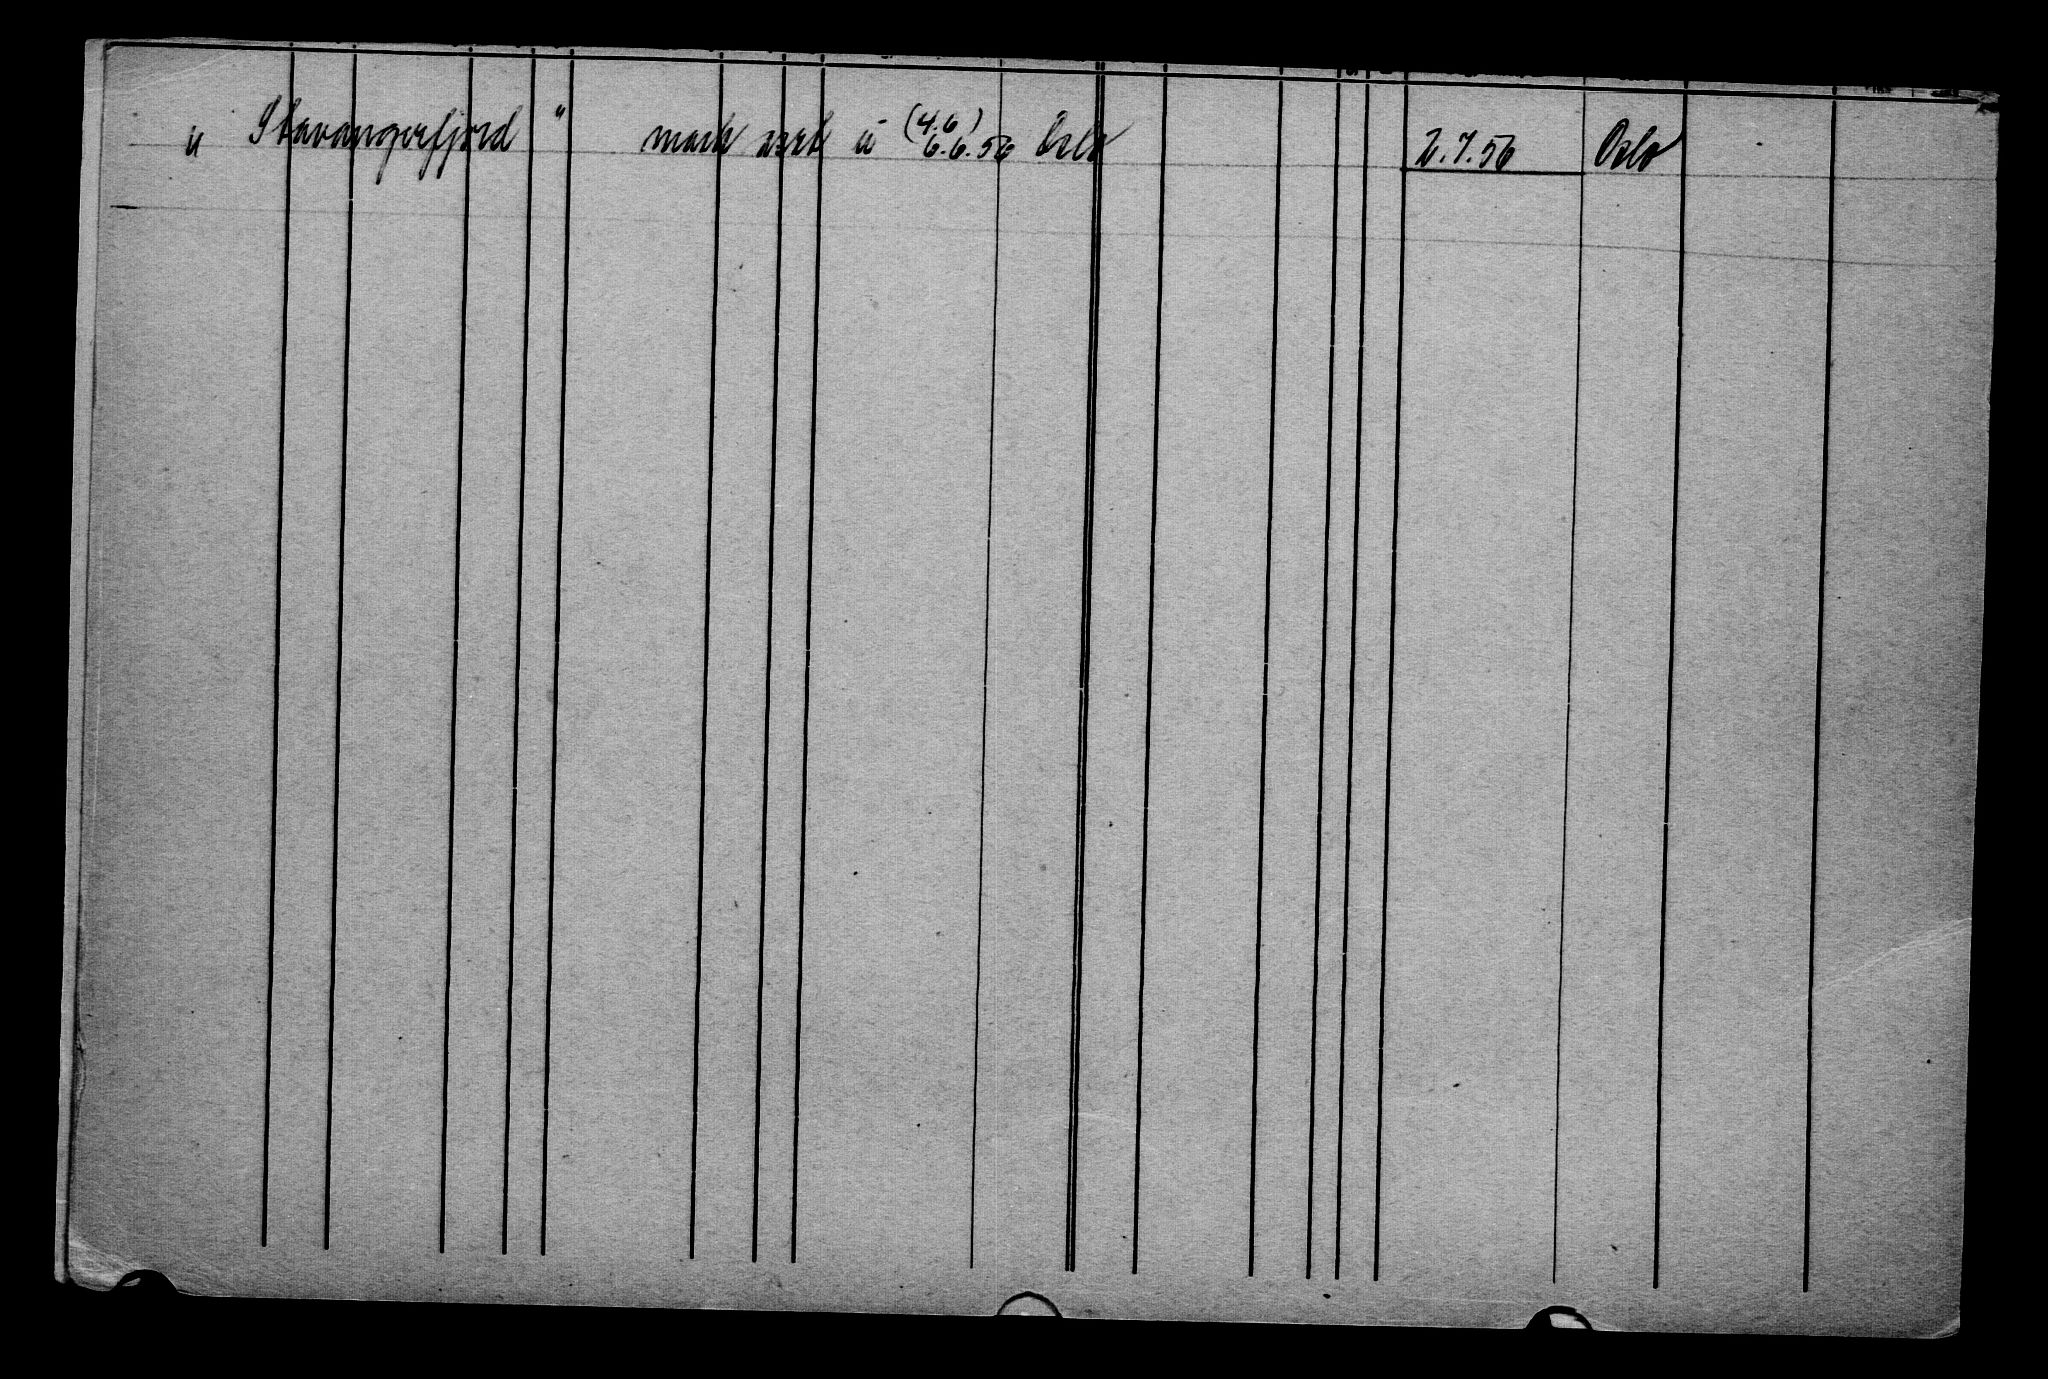 " Stavangerfjord " mask asst u (4.6) 6.6.56 Oslo 2.7.56 Oslo